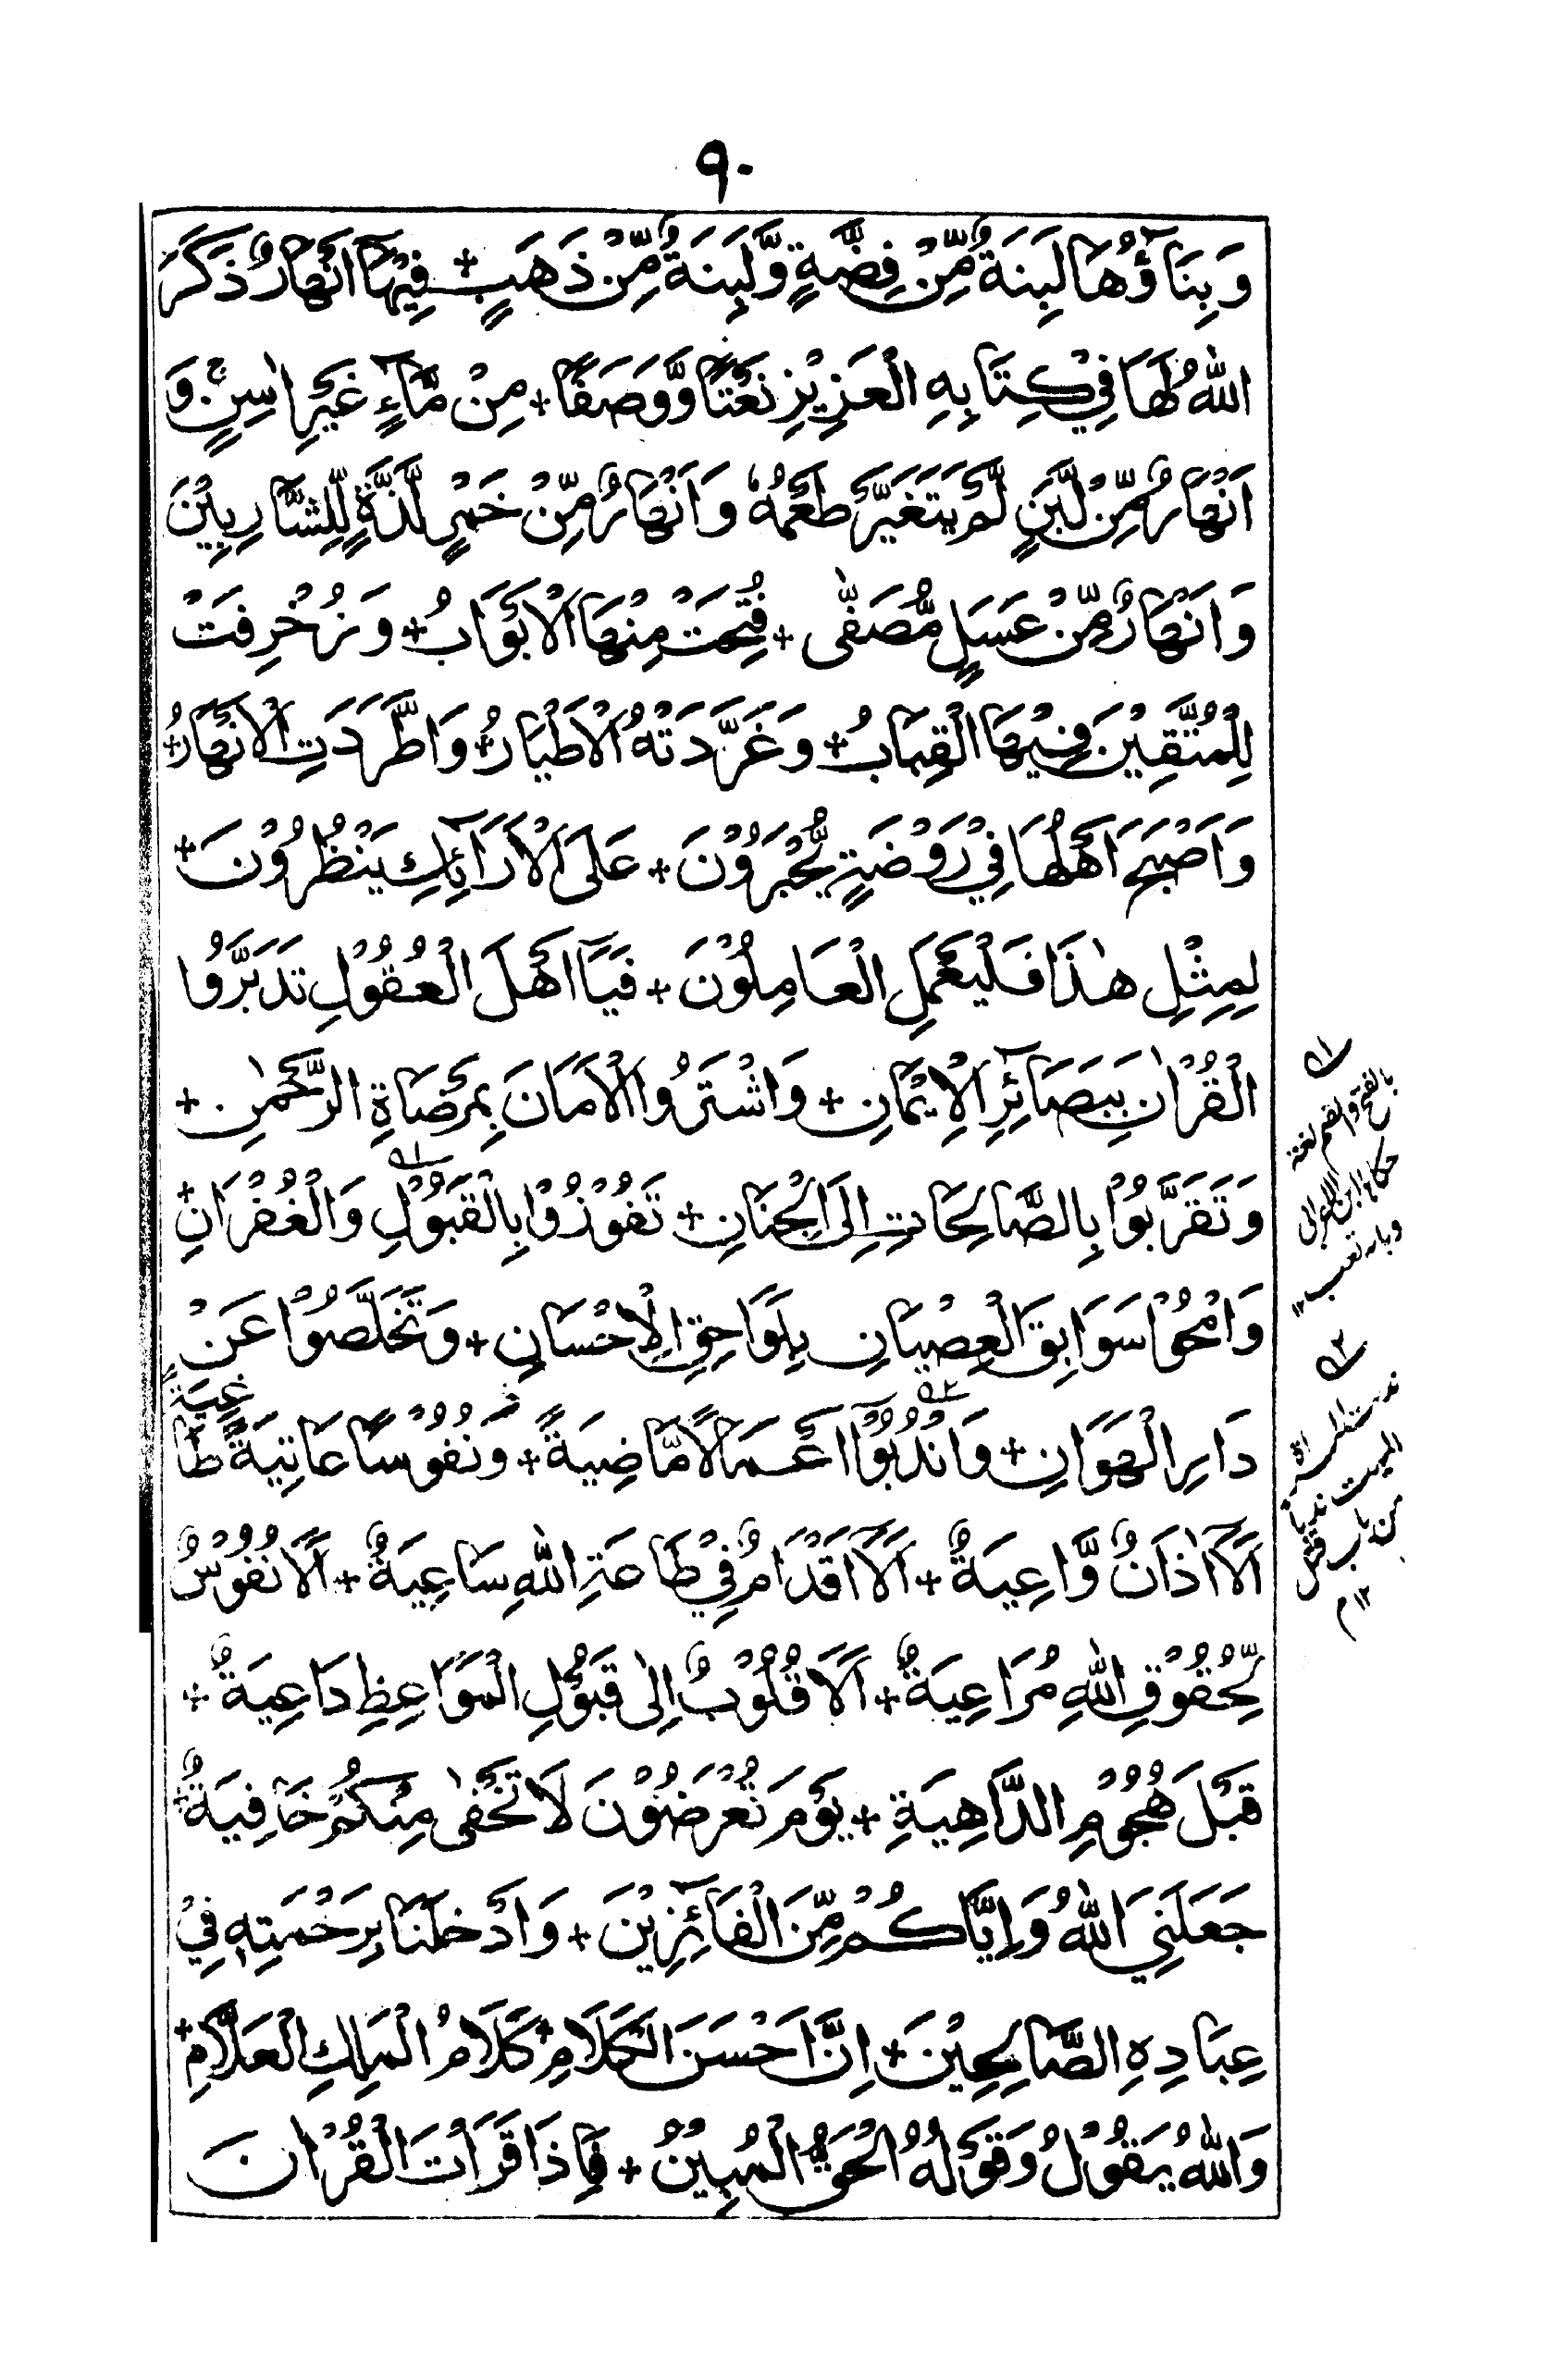 ٩٠
وَبِنَاؤُهَا لَبِنَةٌ مِّنْ فِضَّةٍ وَّلَبِنَةٌ مِّنْ ذَهَبٍ + فِيْهَا اَنْهَارٌ ذَكَرَ
اللهُ لَهَا فِيْ كِتَابِهِ الْعَزِيْزِ نَعْتًا وَّوَصْفًا + مِنْ مَّاءٍ غَيْرِ اٰسِنٍ وَ
اَنْهَارٌ مِّنْ لَّبَنٍ لَّمْ يَتَغَيَّرْ طَعْمُهٗ وَاَنْهَارٌ مِّنْ خَمْرٍ لَّذَّةٍ لِّلشَّارِبِيْنَ
وَاَنْهَارٌ مِّنْ عَسَلٍ مُّصَفّٰى + فُتِحَتْ مِنْهَا الْاَبْوَابُ + وَزُخْرِفَتْ
لِلْمُتَّقِيْنَ فِيْهَا الْقِبَابُ + وَغَرَّدَتْهُ الْاَطْيَارُ + وَاطَّرَدَتِ الْاَنْهَارُ +
وَاَصْبَحَ اَهْلُهَا فِيْ رَوْضَةٍ يُّحْبَرُوْنَ + عَلَى الْاَرَآئِكِ يَنْظُرُوْنَ +
لِمِثْلِ هٰذَا فَلْيَعْمَلِ الْعَامِلُوْنَ + فَيَآ اَهْلَ الْعُقُوْلِ تَدَبَّرُوا
الْقُرْاٰنَ بِبَصَائِرِ الْاِيْمَانِ + وَاشْتَرُوا الْاَمَانَ بِمَرْضَاةِ الرَّحْمٰنِ +
وَتَقَرَّبُوْا بِالصَّالِحَاتِ اِلَى الْجِنَانِ + تَفُوْزُوْا بِالْقَبُوْلِ وَالْغُفْرَانِ +
وَامْحُوْا سَوَابِقَ الْعِصْيَانِ بِلَوَاحِقِ الْاِحْسَانِ + وَتَخَلَّصُوْا عَنْ
دَارِ الْهَوَانِ + وَانْدُبُوْا اَعْمَالًا مَّاضِيَةً + وَنُفُوْسًا عَاتِيَةً طَاغِيَةً
اَلَآ اٰذَانٌ وَّاعِيَةٌ + اَلَآ اَقْدَامٌ فِيْ طَاعَةِ اللهِ سَاعِيَةٌ + اَلَا نُفُوْسٌ
لِّحُقُوْقِ اللهِ مُرَاعِيَةٌ + اَلَا قُلُوْبٌ اِلٰى قَبُوْلِ الْمَوَاعِظِ دَاعِيَةٌ +
قَبْلَ هُجُوْمِ الدَّاهِيَةِ + يَوْمَ تُعْرَضُوْنَ لَا تَخْفٰى مِنْكُمْ خَافِيَةٌ +
جَعَلَنِيَ اللهُ وَاِيَّاكُمْ مِّنَ الْفَآئِزِيْنَ + وَاَدْخَلَنَا بِرَحْمَتِهٖ فِيْ
عِبَادِهِ الصَّالِحِيْنَ + اِنَّ اَحْسَنَ الْكَلَامِ + كَلَامُ الْمَلِكِ الْعَلَّامِ +
وَاللهُ يَقُوْلُ وَقَوْلُهُ الْحَقُّ الْمُبِيْنُ + فَاِذَا قَرَاْتَ الْقُرْاٰنَ
بالفتح والضم لغة
حكاها ابن الاعرابي